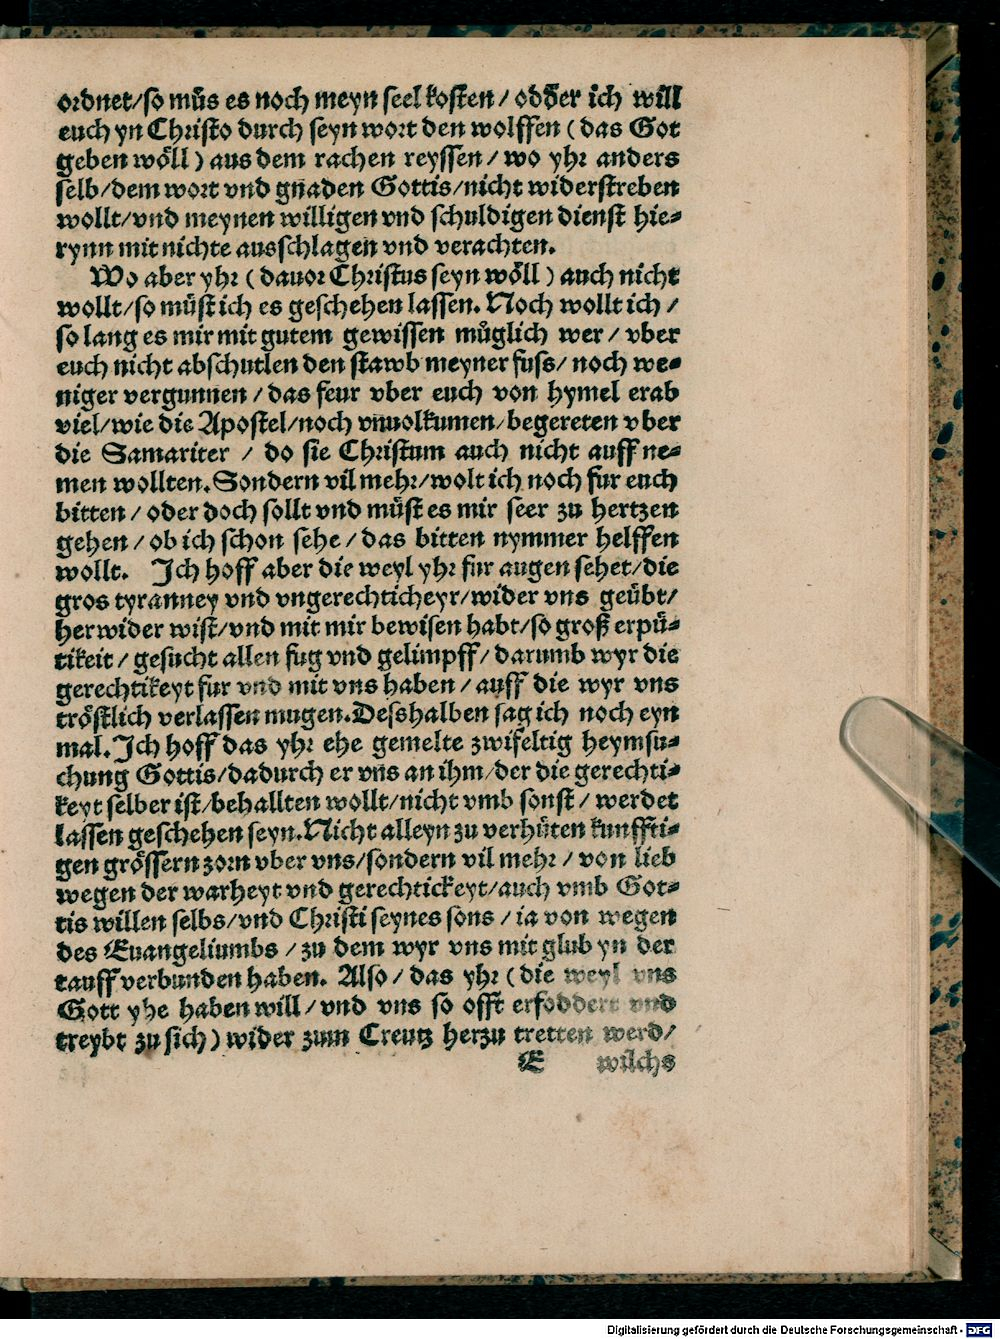 ordnet/so müs es noch meyn seel kosten / odder ich will
euch yn Christo durch seyn wort den wolffen ( das Got
geben wöll ) aus dem rachen reyssen / wo yhr anders
selb/dem wort vnd gnaden Gottis/nicht widerstreben
wollt/vnd meynen willigen vnd schuldigen dienst hie⸗
rynn mit nichte ausschlagen vnd verachten.
Wo aber yhr ( dauor Christus seyn wöll ) auch nicht
wollt/so müst ich es geschehen lassen. Noch wollt ich /
so lang es mir mit gutem gewissen müglich wer / vber
euch nicht abschutlen den stawb meyner fuss/ noch we⸗
niger vergunnen / das feur vber euch von hymel erab
viel/wie die Apostel/noch vnuolkumen/begereten vber
die Samariter / do sie Christum auch nicht auff ne⸗
men wollten. Sondern vil mehr/wolt ich noch fur euch
bitten / oder doch sollt vnd müst es mir seer zu hertzen
gehen / ob ich schon sehe / das bitten nymmer helffen
wollt. Ich hoff aber die weyl yhr fur augen sehet/die
gros tyranney vnd vngerechticheyr/wider vns geübt/
herwider wist/vnd mit mir bewisen habt/so groß erpü⸗
tikeit / gesucht allen fug vnd gelimpff/ darumb wyr die
gerechtikeyt fur vnd mit vns haben / auff die wyr vns
tröstlich verlassen mugen. Desshalben sag ich noch eyn
mal. Ich hoff das yhr ehe gemelte zwifeltig heymsu⸗
chung Gottis/dadurch er vns an ihm/der die gerechti⸗
keyt selber ist/behallten wollt/nicht vmb sonst / werdet
lassen geschehen seyn. Nicht alleyn zu verhüten kunffti⸗
gen grössern zorn vber vns/sondern vil mehr / von lieb
wegen der warheyt vnd gerechtickeyt/auch vmb Got⸗
tis willen selbs/vnd Christi seynes sons / ia von wegen
des Euangeliumbs / zu dem wyr vns mit glub yn der
tauff verbunden haben. Also / das yhr ( die weyl vns
Gott yhe haben will / vnd vns so offt erfoddert vnd
treybt zu sich ) wider zum Creutz herzu tretten werd/
E wilchs
Digitalisierung gefördert durch die Deutsche Forschungsgemeinschaft - DFG